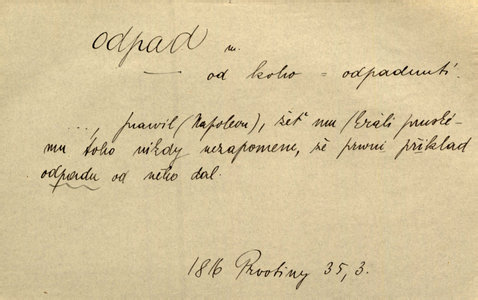 odpad m.
— od koho = odpadnutí.
..., prawil (Napoleon), žeť mu (králi pruské-
mu toho nikdy nezapomene, že prwní příklad
odpadu od něho dal.
1816 Prvotiny 35, 3.